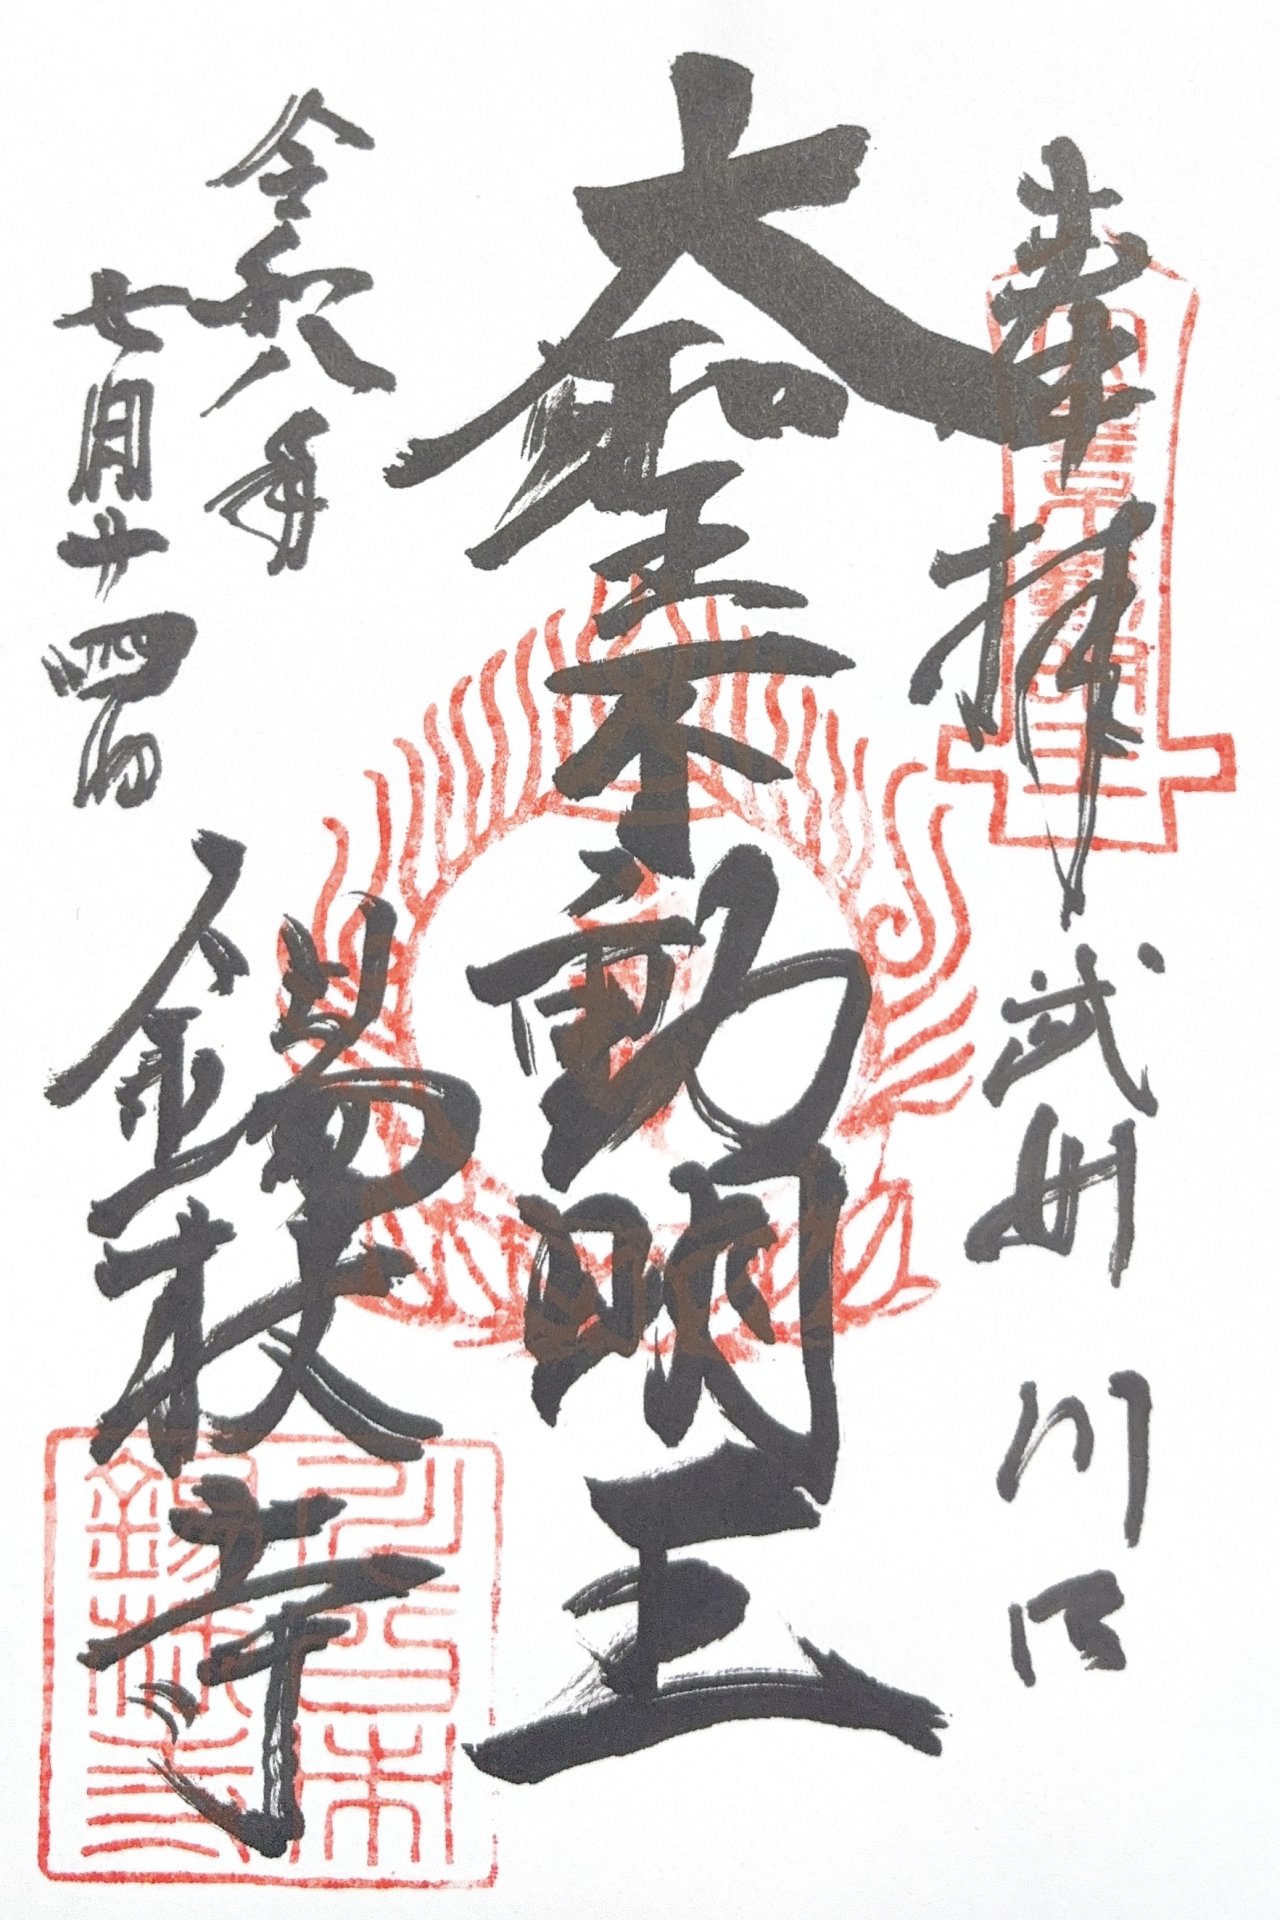 奉拝
武州 川口
大聖不動明王
令和八年
七月廿四日
錫杖寺
川口市
錫杖寺